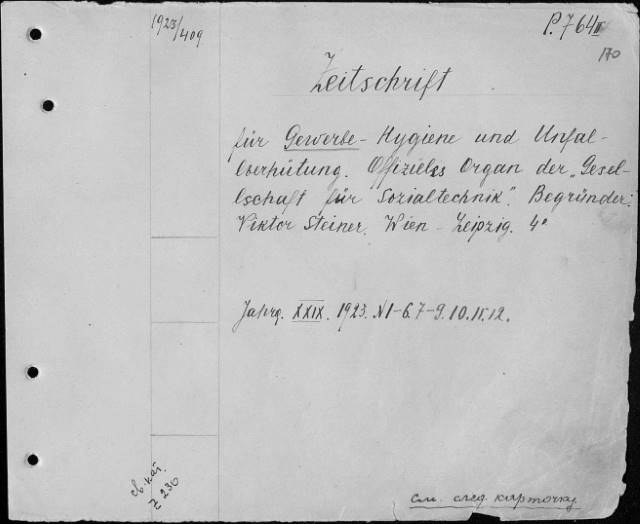 1923/409
P. 764 II
170
Zeitschrift
für Gewerbe- Hygiene und Unfal-
lverhütung. Offizielles Organ der „Gesel-
lschaft für Sozialtechnik". Begründer:
Viktor Steiner. Wien - Leipzig. 4°
Jahrg. XXIX. 1923. N 1-6. 7-9. 10. 11. 12.
св. кат.
Z 236
См. след. карточку